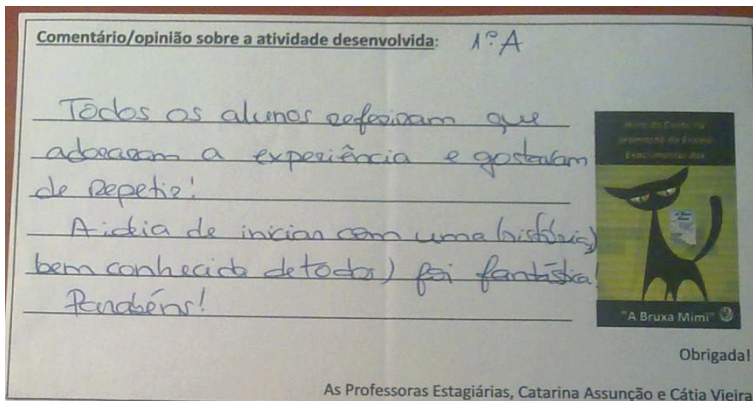 Comentário/opinião sobre a atividade desenvolvida: 1º A
Todos os alunos referiram que
adoraram a experiência e gostavam
de repetir!
A ideia de iniciar com uma (história,
bem conhecida de todos) foi fantástica!
Parabéns!
promoção do Ensino
Experimental das
"A Bruxa Mimi"
Obrigada!
As Professoras Estagiárias, Catarina Assunção e Cátia Vieira